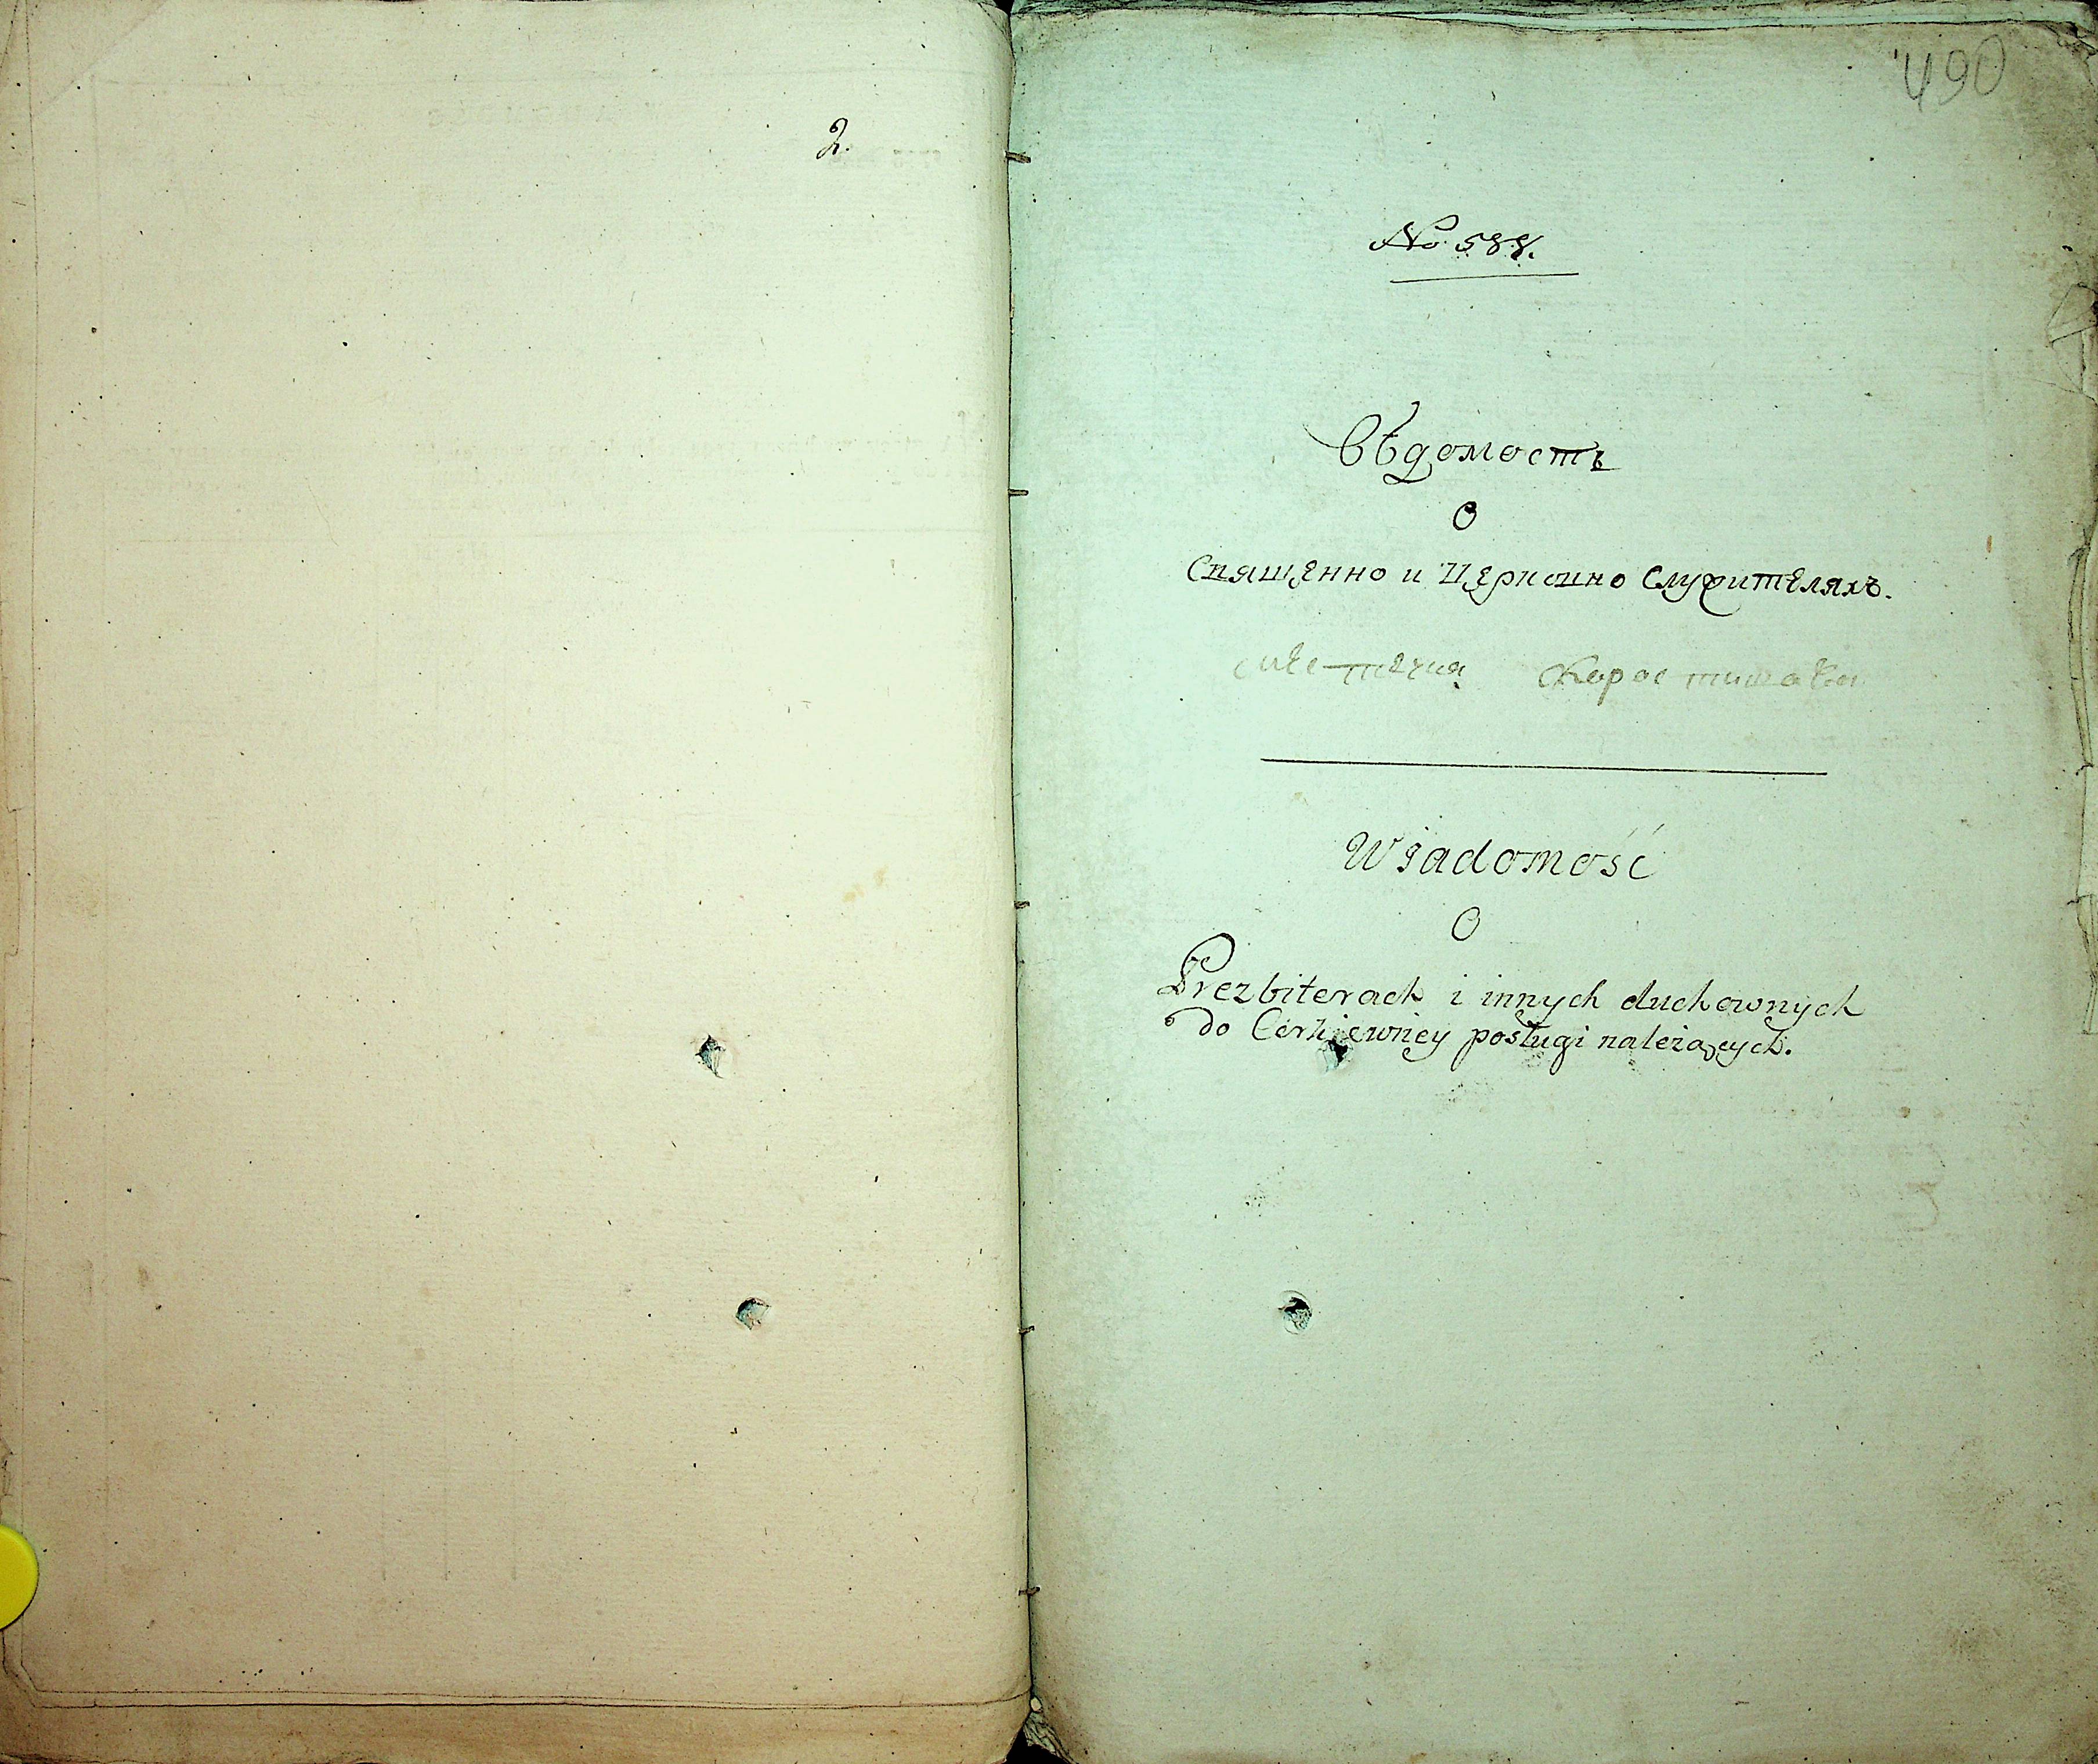 2.
490
No. 588.
Вѣдомость
О
Священно и Церковно Служителяхъ.
мѣстечка Коростишева
Wiadomość
O
Prezbiterach i innych duchownych
do Cerkiewney posługi należących.